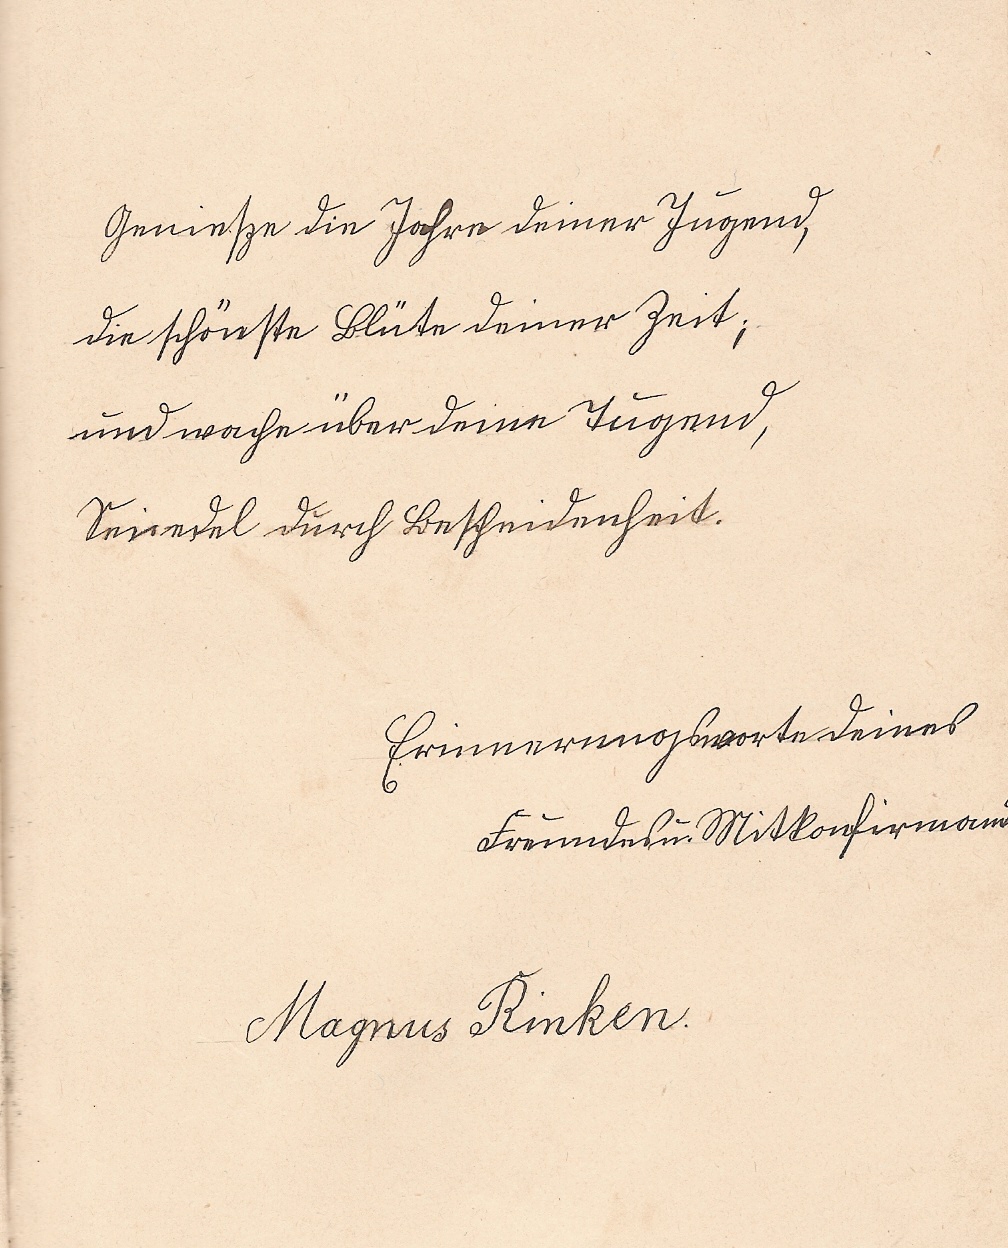 Genieße die Jahre deiner Jugend,
die schönste Blüte deiner Zeit;
und wache über deine Tugend,
Sei edel durch Bescheidenheit.
Erinnerungsworte deines
Freundes u. Mitkonfirmand
Magnus Rinken.